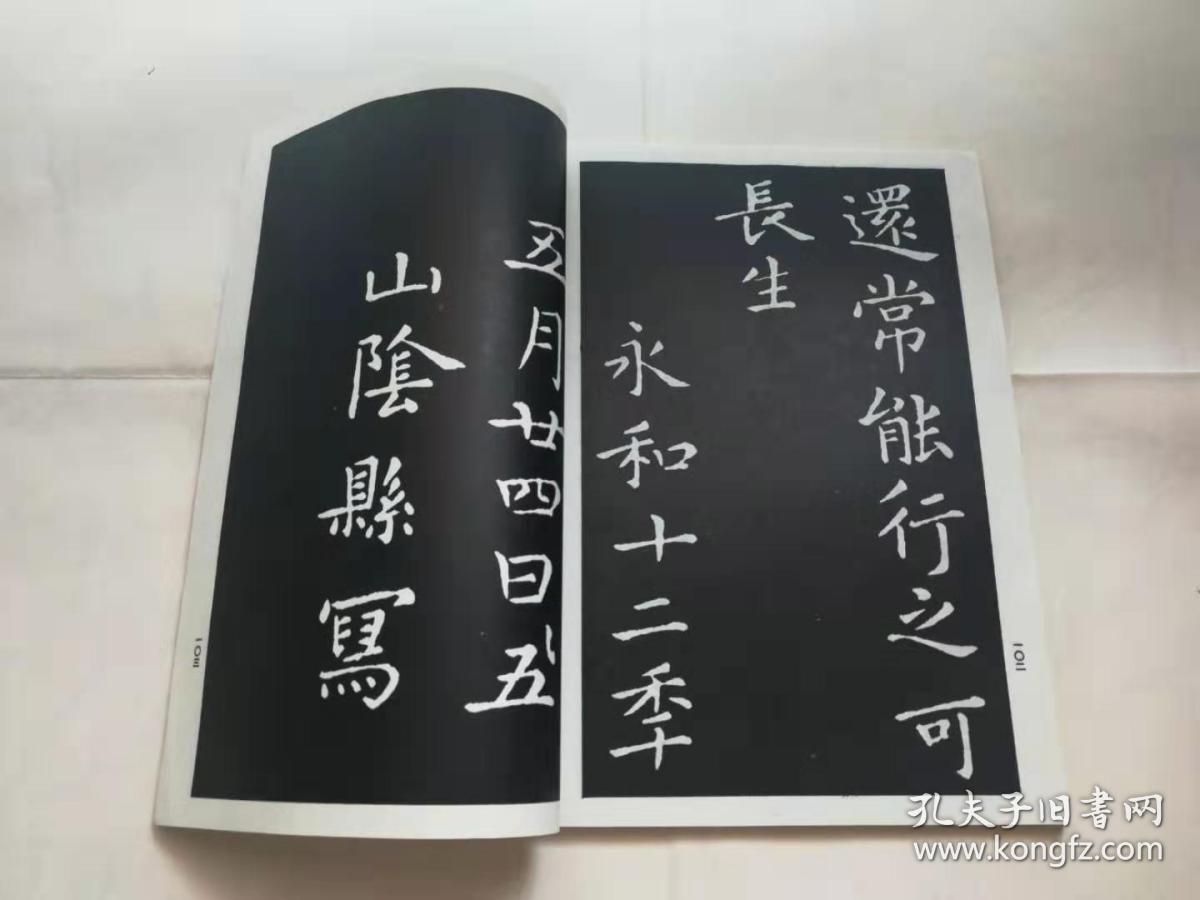 還常能行之可
長生
永和十二秊
一〇二
五月廿四日五
山陰縣寫
一〇三
孔夫子旧書网
www.kongfz.com